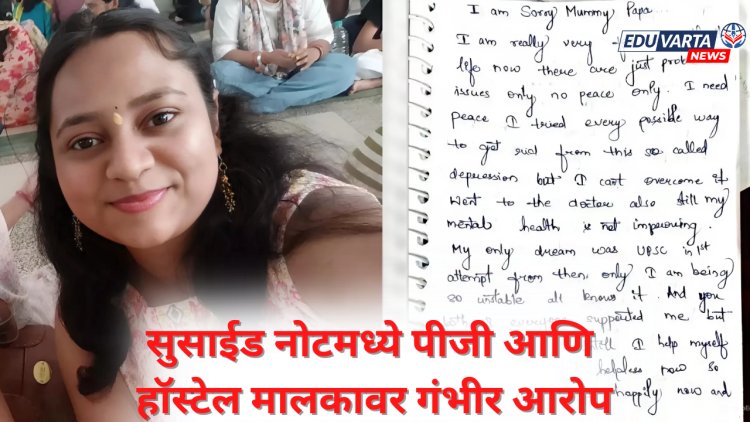 I am Sorry Mummy Papa..
EDUVARTA
NEWS
I am really very
life now there are just prob
issues only no peace only. I need
peace I tried every possible way
to get rid from this so called
depression but I cant overcome it
went to the doctor also still my
mental health is not improving.
My only dream was UPSC in 1st
attempt from then only I am being
so unstable all knows it. And you
supported me but
I help myself
helpless now so
happily now and
सुसाईड नोटमध्ये पीजी आणि
हॉस्टेल मालकावर गंभीर आरोप